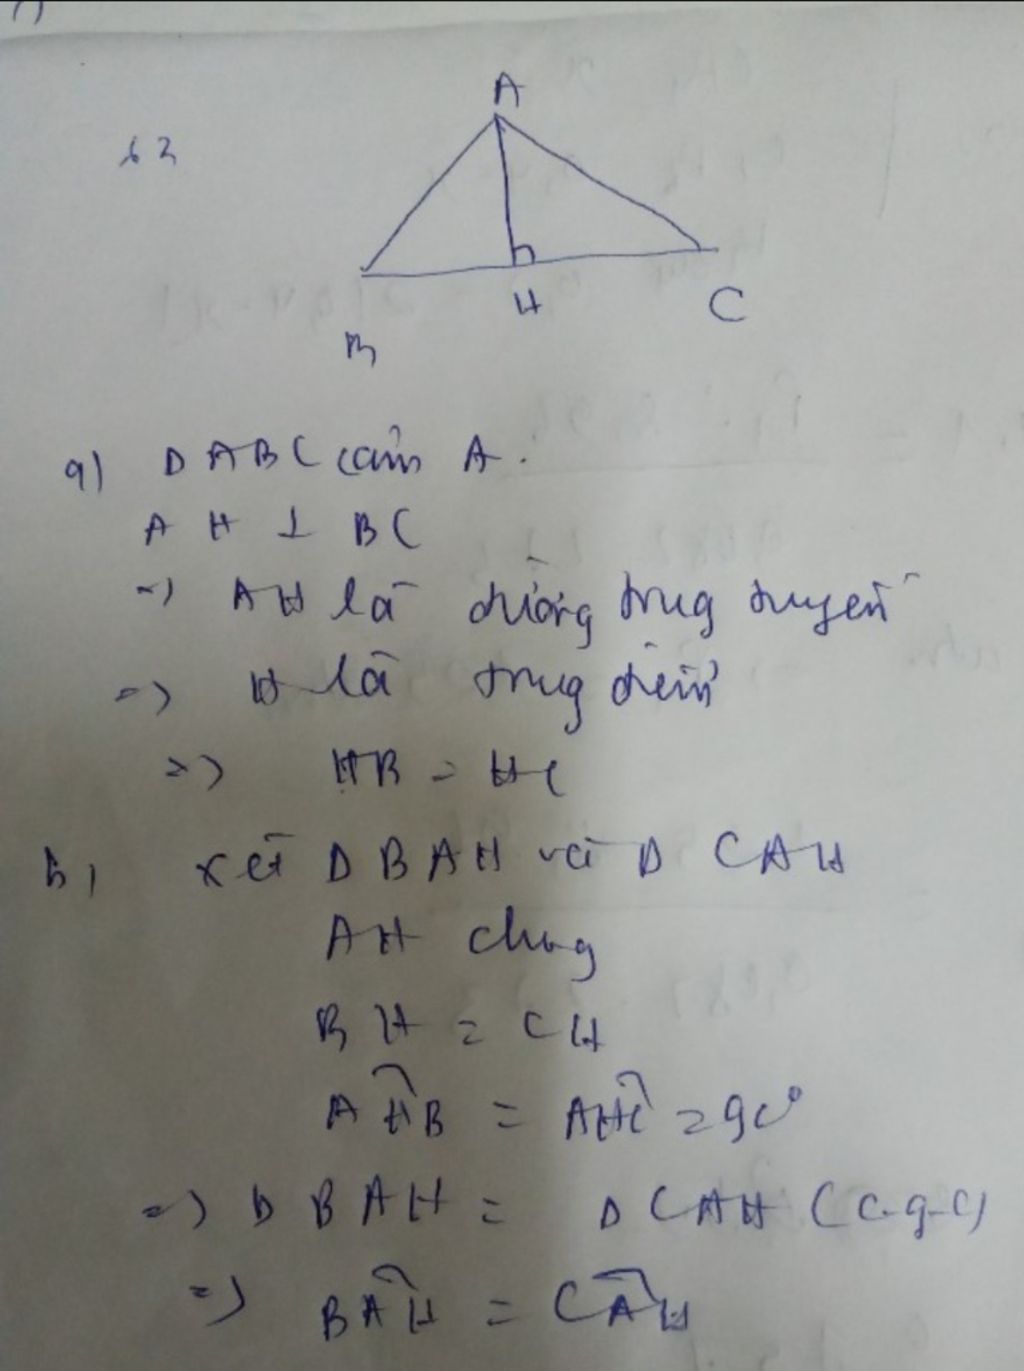 63
A
H
C
B
a) Δ ABC cân A.
AH ⊥ BC
=> AH là đường trung tuyến
=> H là trung điểm
=> HB = HC
b, xét Δ BAH và Δ CAH
AH chung
BH = CH
AHB = AHC = 90°
=> Δ BAH = Δ CAH (c-g-c)
=> BAH = CAH